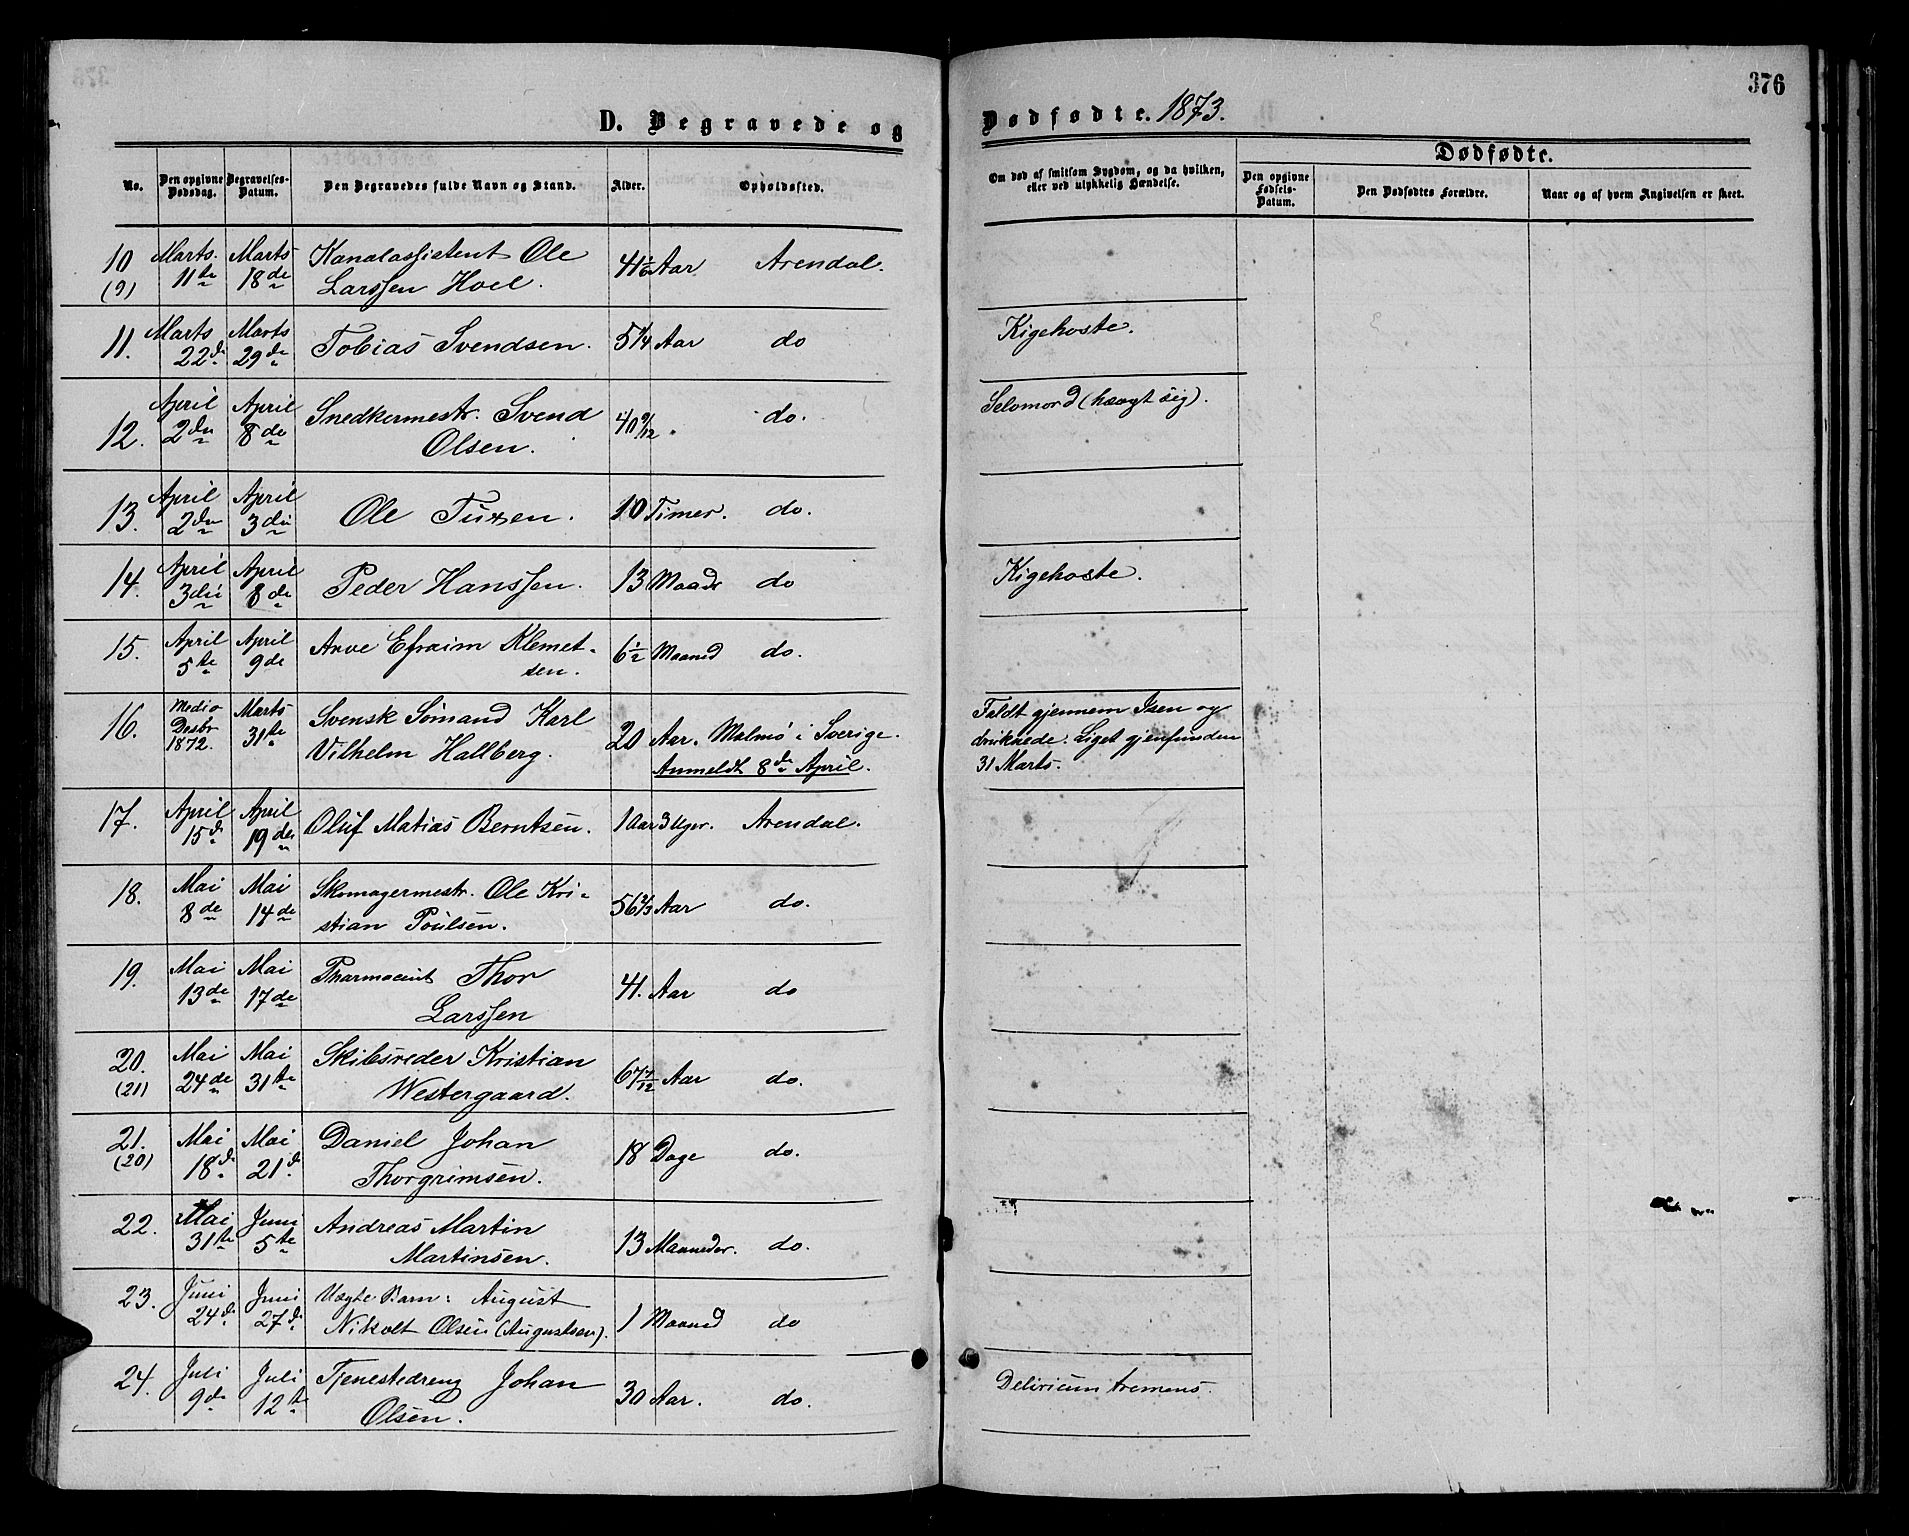 376
D. Begravede og Dødfødte. 1873.
No. Den opgivne Dødsdag. Begravelses-Datum. Den Begravedes fulde Navn og Stand. Alder. Opholdssted. Om død af smitsom Sygdom, og da hvilken, eller ved ulykkelig Hændelse. Dødfødte.
Den opgivne Fødsels-Datum. Den Dødfødtes Forældre. Naar og af hvem Angivelsen er skeet.
10 Marts. Marts Kanalassistent Ole
(9) 11te 18de Larssen Hoel. 41 Aar Arendal.
11. Marts Marts Tobias Svendsen. 5 1/4 Aar do Kigehoste.
22de 29de
April April Snedkermestr. Svend
12. 2den 8de Olsen. 40 9/12 . do. Selvmord (hængt sig).
13. April April Ole Tuxen. 10 Timer. do.
2den 3die
14. April April Peder Hanssen. 13 Maadr do Kigehoste.
3die 8de
15. April April Arve Efraim Klemet-
5te 9de sen. 6 1/2 Maaned do.
16. Medio Marts Svensk Sømand Karl
Desbr 31te Vilhelm Hallberg. 20 Aar. Malmø i Sverige.
1872. Anmeldt 8de April.
Faldt gjennem Isen og
druknede. Liget gjenfunden
31 Marts.
17. April April Oluf Matias Berntsen. 1 Aar 3 Uger. Arendal.
15de 19de
18. Mai Mai Skomagermestr. Ole Kri-
8de 14de stian Poulsen. 56 2/3 Aar do.
19. Mai Mai Pharmaceut Thor
13de 17de Larssen 41. Aar do
20. Mai Mai Skibsreder Kristian
(21) 24de 31te Westergaard. 67 7/12 Aar do.
21. Mai Mai Daniel Johan
(20) 18de 21de Thorgrimsen. 18 Dage do.
22. Mai Juni Andreas Martin
31te 5te Martinsen. 13 Maaneder. do.
23. Juni Juni Uægte Barn: August
24de 27de Nikolt Olsen (Augustsen). 1 Maaned do
24. Juli Juli Tjenestedreng Johan
9de 12te Olsen. 30 Aar. do. Delirium tremens.